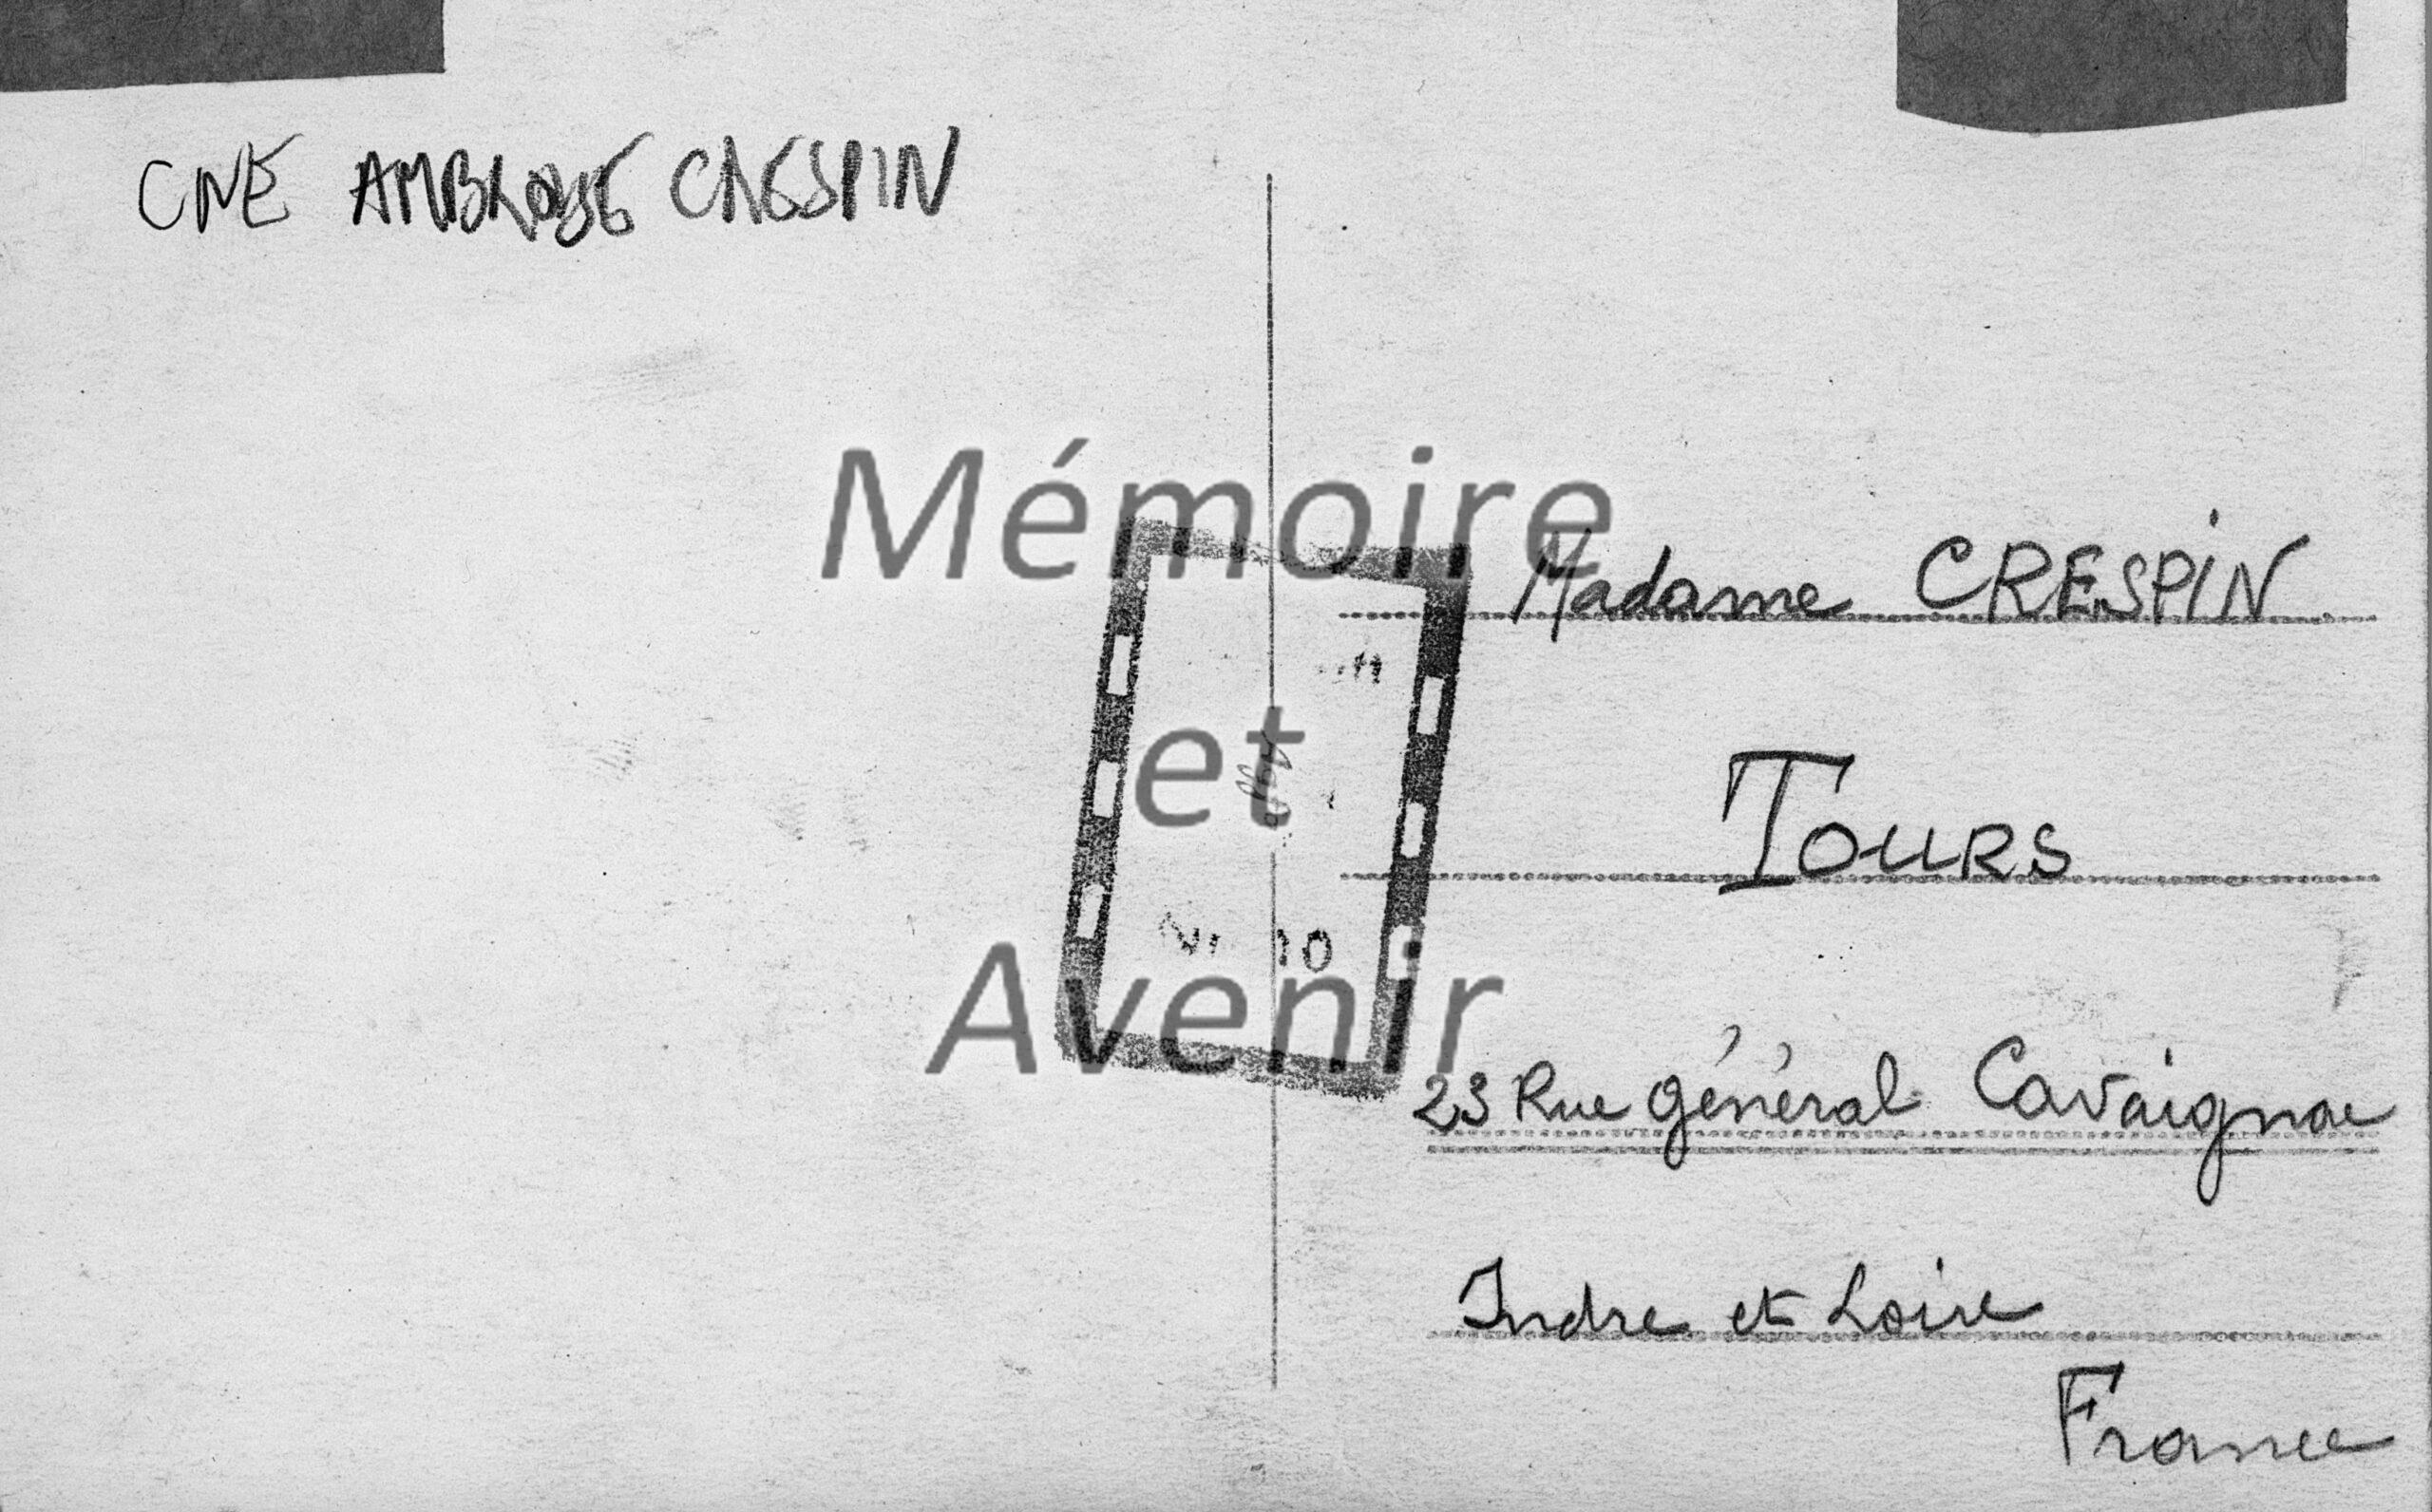 CNE AMBROISE CRESPIN
Mémoire
et
Avenir
Madame CRESPIN
Tours
23 Rue général Cavaignac
Indre et Loire
France
10